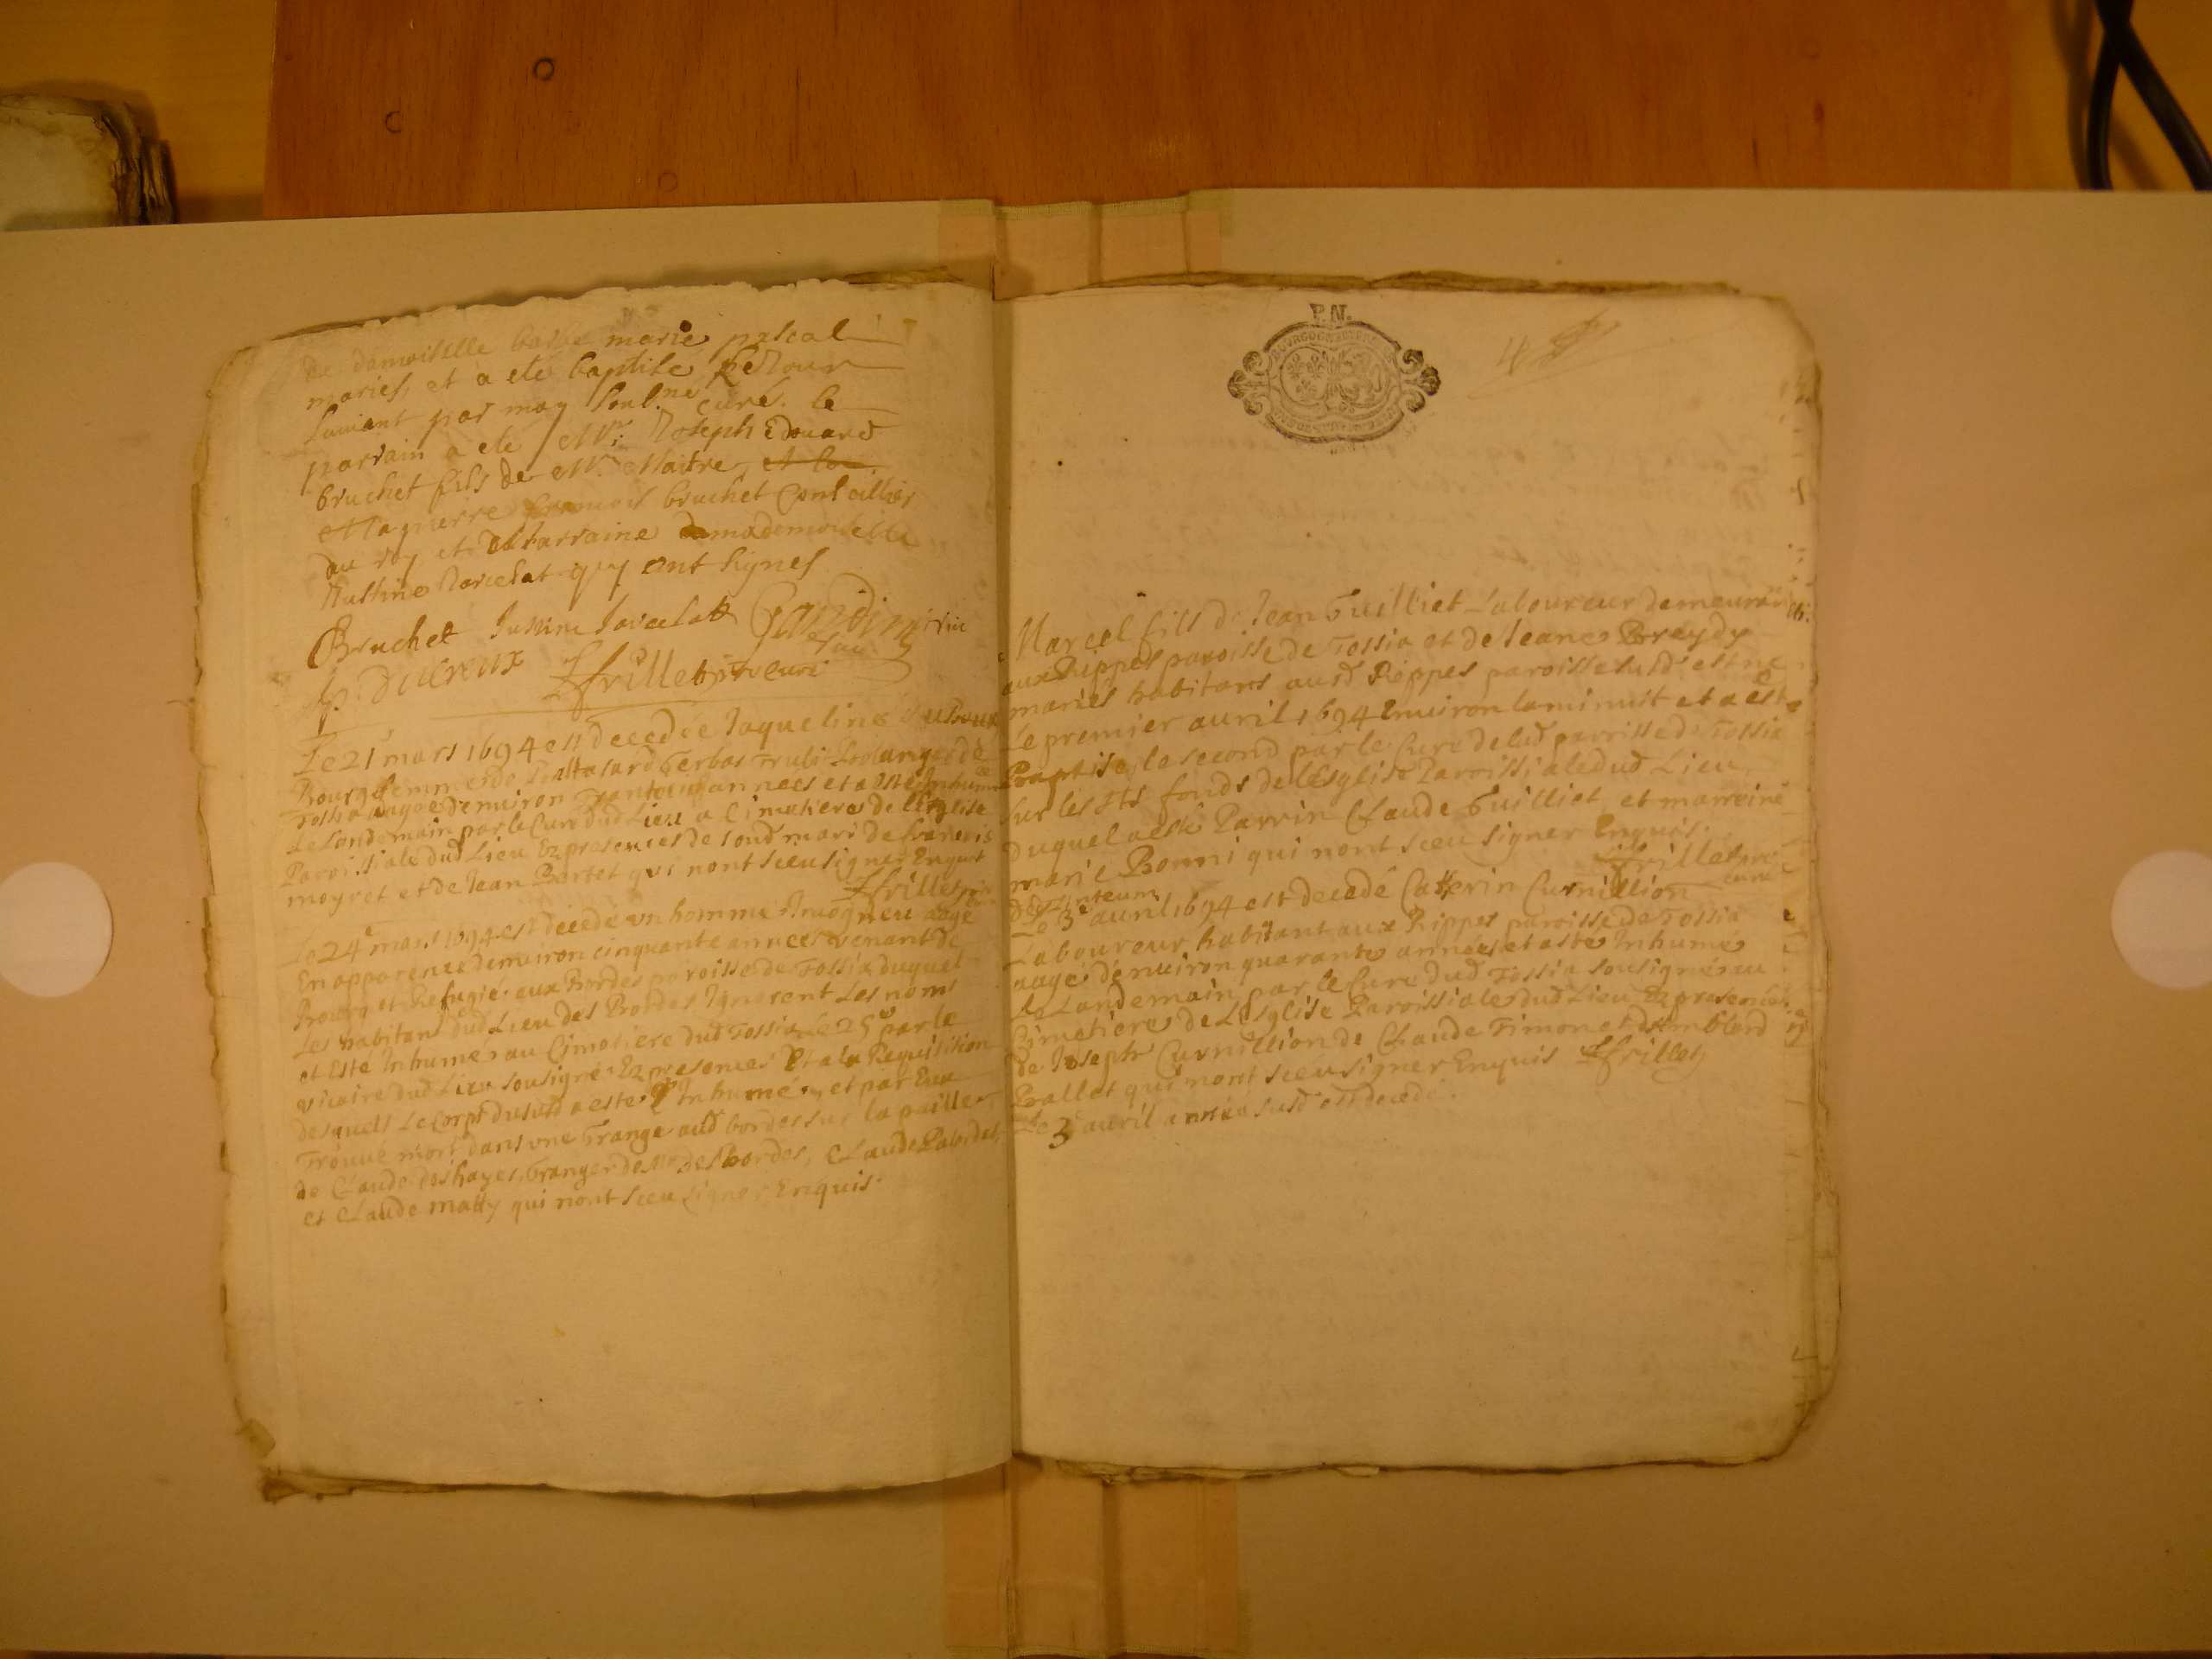 de damoiselle marie pascal
mariés, et a eté baptisé le Jour
suivant par moy soul.né curé. le
parrain a eté Mr. Joseph Edouard
bruchet fils de Mr. Maitre et la
bruchet Conseillier
du roy et marraine mademoiselle
Justine Javelat quy ont signes
Bruchet Justine Javelatt
p. ducreux ffrillet ptre curé
Le 21e mars 1694 est decedée Jaqueline
Bourg femme de
aagée denuiron années et a esté Inhumé
Le Landemain par le Curé dud Lieu a Cimetiere de L'Esglise
Paroissiale dud Lieu En presences de sond mari de francois
moyret et de Jean Bertet qui nont sceu signer Enquis
ffrillet
Le 24e mars 1694 est decedé vn homme Jncogneu aagé
En apparence denuiron cinquante années venant de
Bourg et Refugié aux Bordes paroisse de Tossia duquel
Les habitans dud Lieu des Bordes Ignorent Les noms
et Esté Inhumé au Cimetiere dud Tossia Le 25e par le
vicaire dud Lieu sousigné En presences Et a la Requisition
desquels Le Corps dususd a esté Inhumé, et par Eux
Trouvé mort dans vne Grange aud bordes sur la paille
de Claude deshayes, Granger de Mr des bordes, Claude
et Claude matty qui nont sceu signer Enquis.
P.N.
BOURGOGNE
4
Marcel fils de Jean Guilliet Laboureur demeurant
aux Rippes paroisse de Tossia et de Jeane Breydy
mariés habitans ausd Rippes paroisse susd est né
Le premier auril 1694 Enuiron la minuit et a esté
Baptisé le second par le Curé delad parroisse de Tossia
sur les Sts fonds de L'Esglise Paroissiale dud Lieu
Duquel a esté Parrin Claude Guilliet et marreine
marie Bonni qui nont sceu signer Enquis.
ffrillet ptre
curé
Le 3e auril 1694 est decedé Catterin Curnillion
Laboureur habitant aux Rippes paroisse de Tossia
aagé denuiron quarante années et a esté Inhumé
le Landemain par le Curé dud Tossia sousigné au
Cimetiere de L'Esglise Paroissiale dud Lieu En presences
de Joseph Curnillion de Claude Timon et damblard
Ballet qui nont sceu signer Enquis ffrillet
Le 3e auril année susd est decedé.